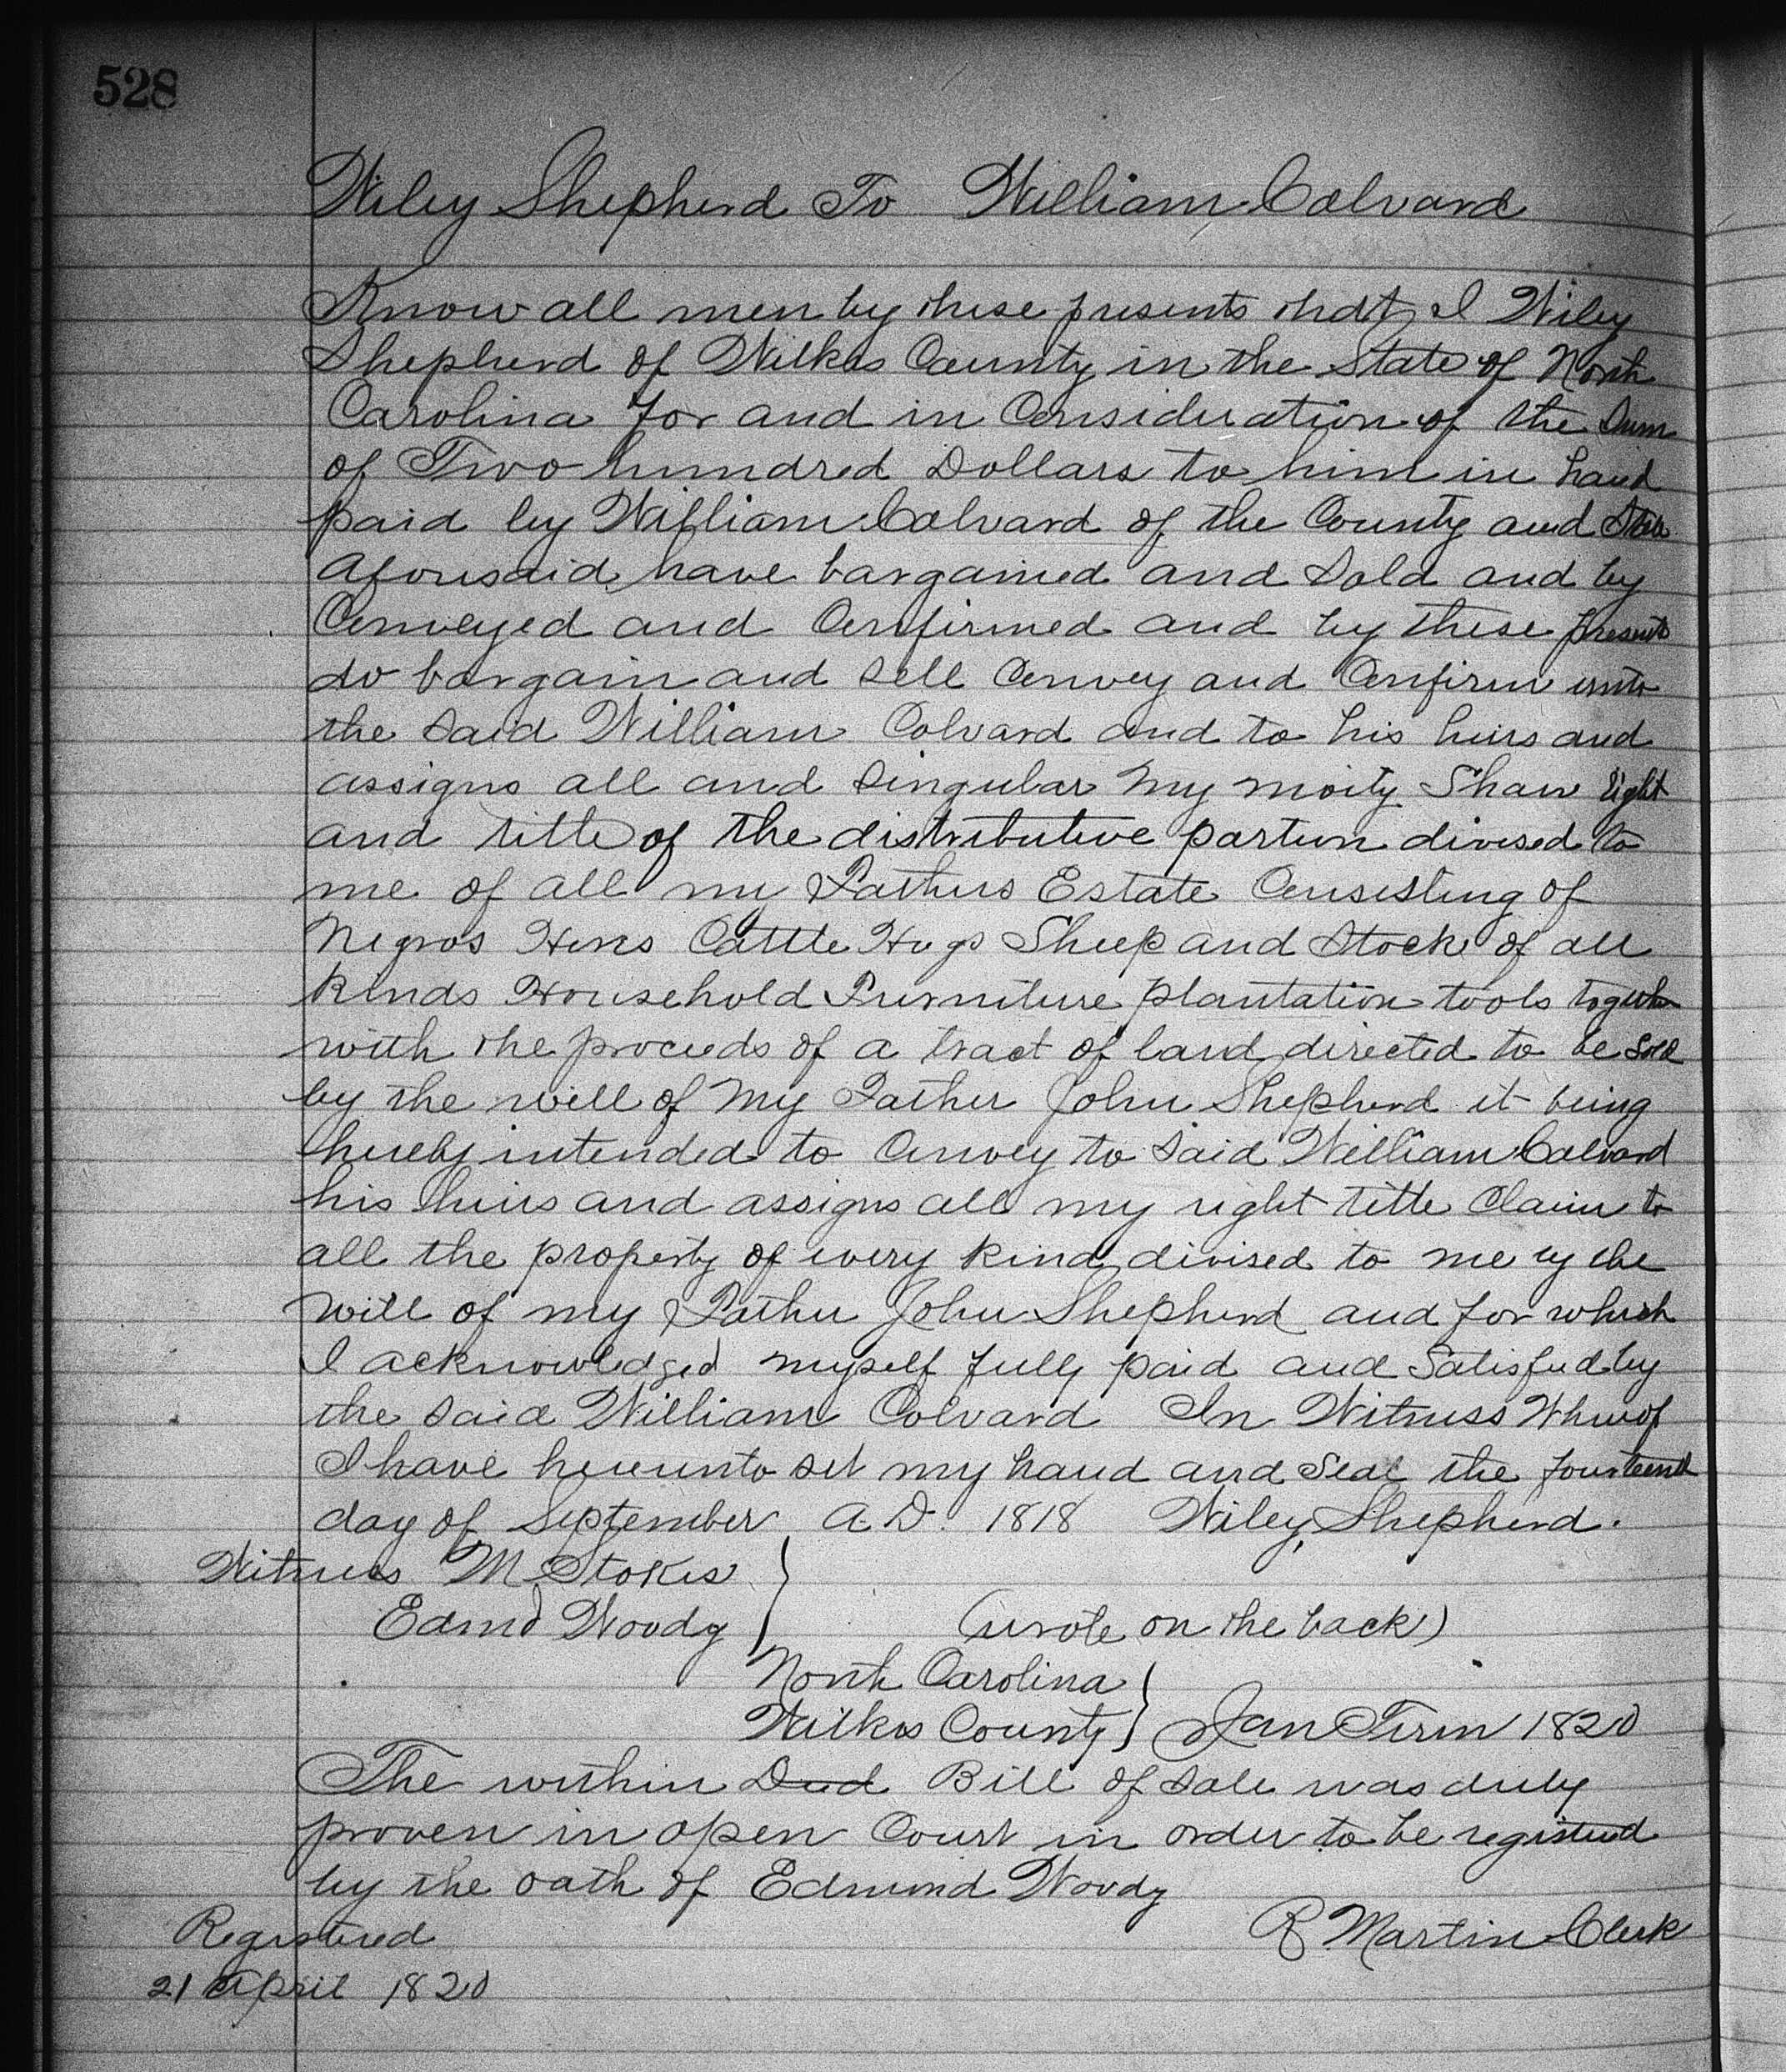 528
Wiley Shepherd To William Colvard
Know all men by these presents that I Wiley
Shepherd of Wilkes County in the State of North
Carolina for and in Consideration of the Sum
of Two hundred Dollars to him in hand
paid by William Colvard of the County and State
aforesaid have bargained and Sold and by
Conveyed and Confirmed and by these presents
do bargain and sell Convey and Confirm unto
the said William Colvard and to his heirs and
assigns all and singular my moity Share right
and title of the distributive partion divised to
me of all my Fathers Estate Consisting of
Negros Horses Cattle Hogs Sheep and Stock of all
kinds Household Furniture plantation tools together
with the proceeds of a tract of land directed to be sold
by the will of my Father John Shepherd it being
hereby intended to Convey to said William Colvard
his heirs and assigns all my right title Claim to
all the property of every kind divised to me by the
will of my Father John Shepherd and for which
I acknowledged myself fully paid and Satisfied by
the said William Colvard In Witness Whereof
I have hereunto set my hand and Seal the fourteenth
day of September A.D. 1818 Wiley Shepherd.
Witness M Stokes
Edmd Woody (wrote on the back)
North Carolina
Wilkes County Jan Term 1820
The within Deed Bill of Sale was duly
proven in open Court in order to be registered
by the oath of Edmund Woody
R Martin Clerk
Registered
21 April 1820